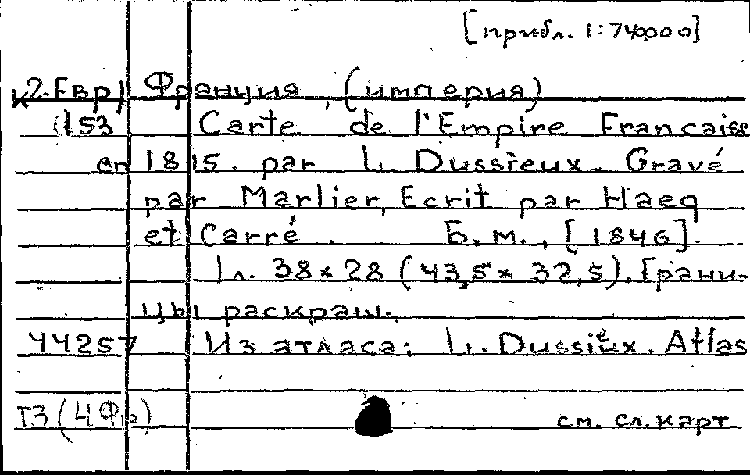 [прибл. 1:740000]
К2-Евр) Франция, (империя)
(153 Carte de l'Empire Francaise
en 1815. par L. Dussieux. Gravé
par Marlier, Ecrit par Haeq
et Carré. Б.м., [1846].
1л. 38×28 (43,5×32,5). Грани-
цы раскраш.
44257 Из атласа: L. Dussieux. Atlas
Т3(4Фр) см. сл. карт